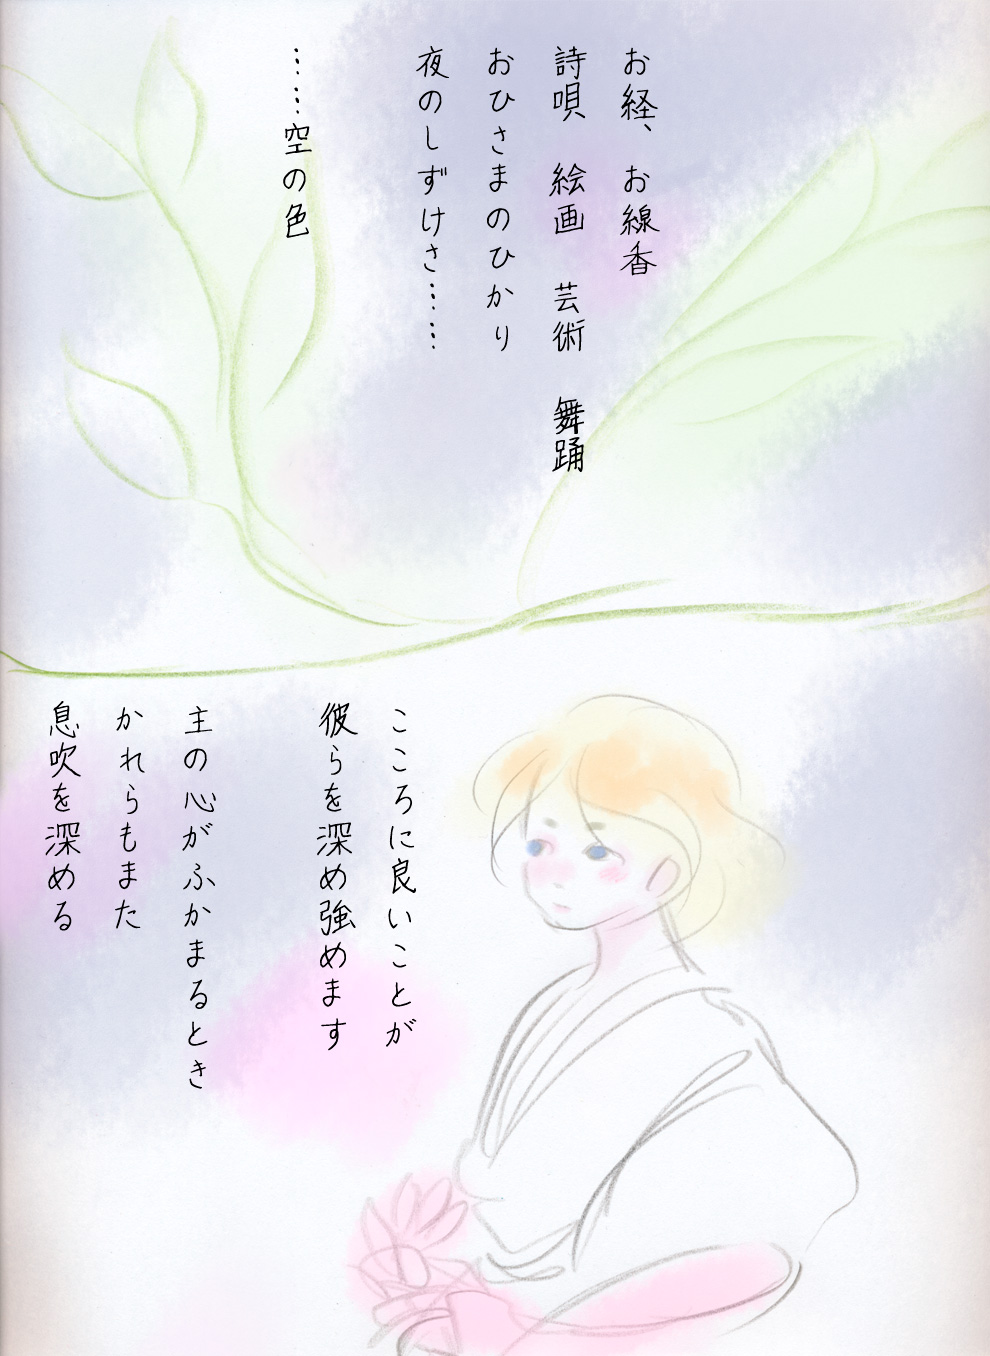 お経、お線香
詩唄　絵画　芸術　舞踊
おひさまのひかり
夜のしずけさ……
……空の色
こころに良いことが
彼らを深め強めます
主の心がふかまるとき
かれらもまた
息吹を深める